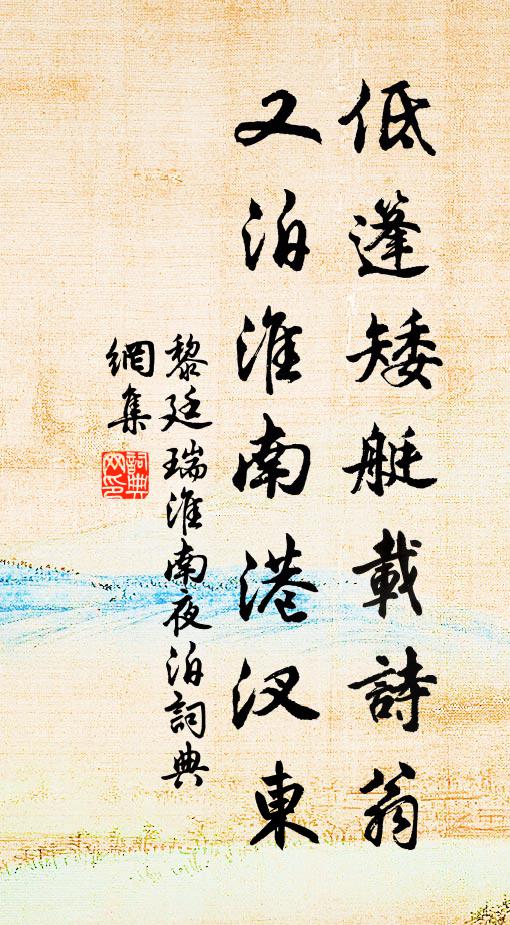 低篷矮艇載詩翁
又泊淮南港汊東
黎廷瑞淮南夜泊詞典
網集
詞典网印